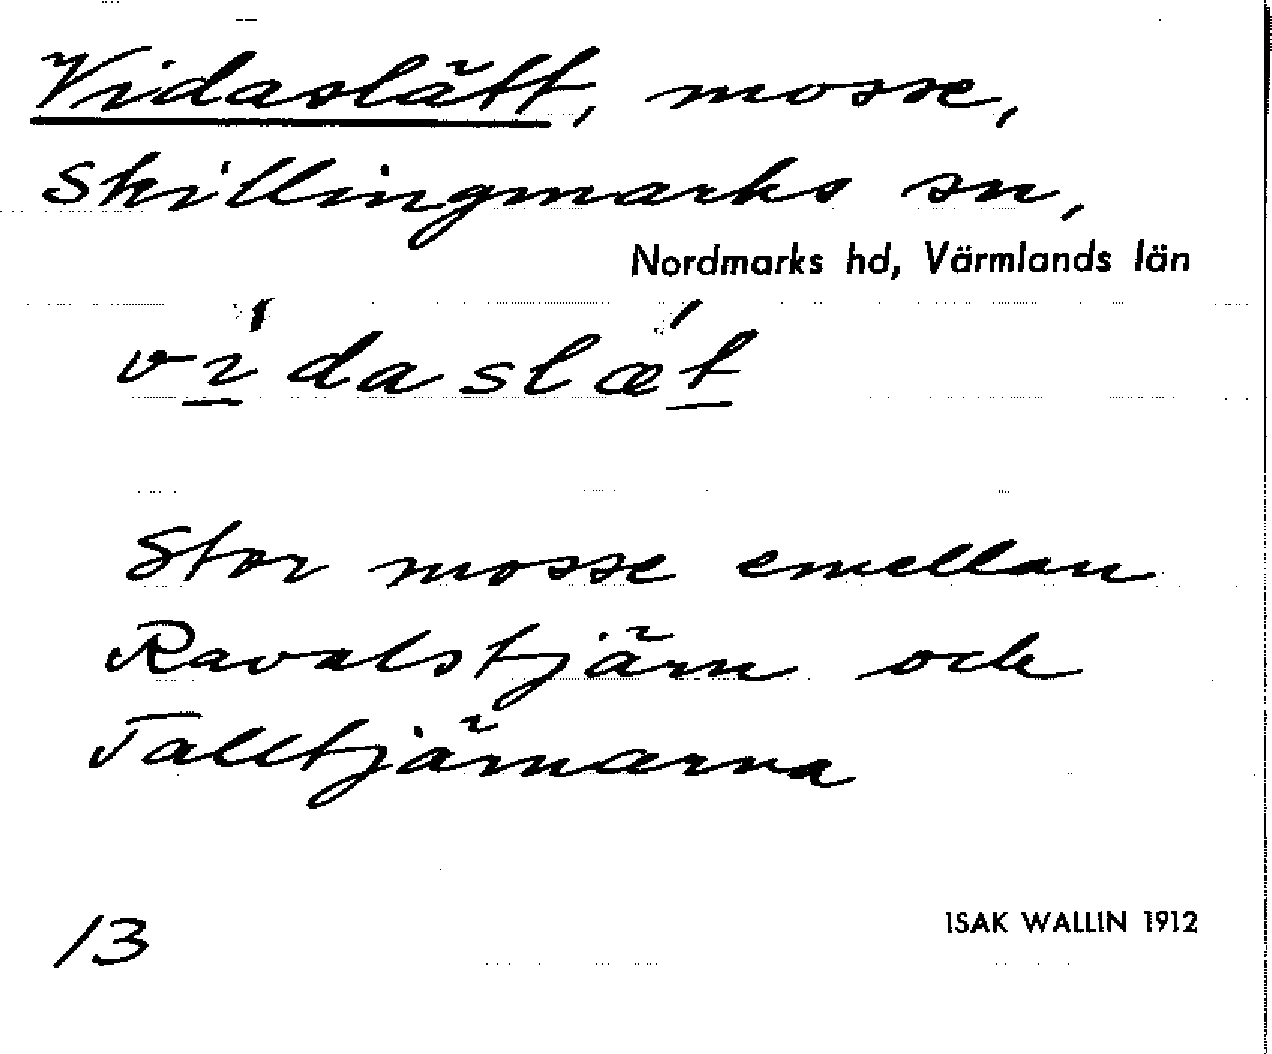 Vidaslätt, mosse,
Skillingmarks sn,
Nordmarks hd, Värmlands län
ví̱daslæṯ́
Stor mosse emellan
Ravalstjärn och
Talltjärnarna
13
ISAK WALLIN 1912